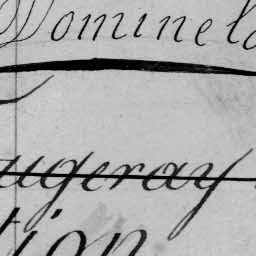 Dominela
ugeray
tion